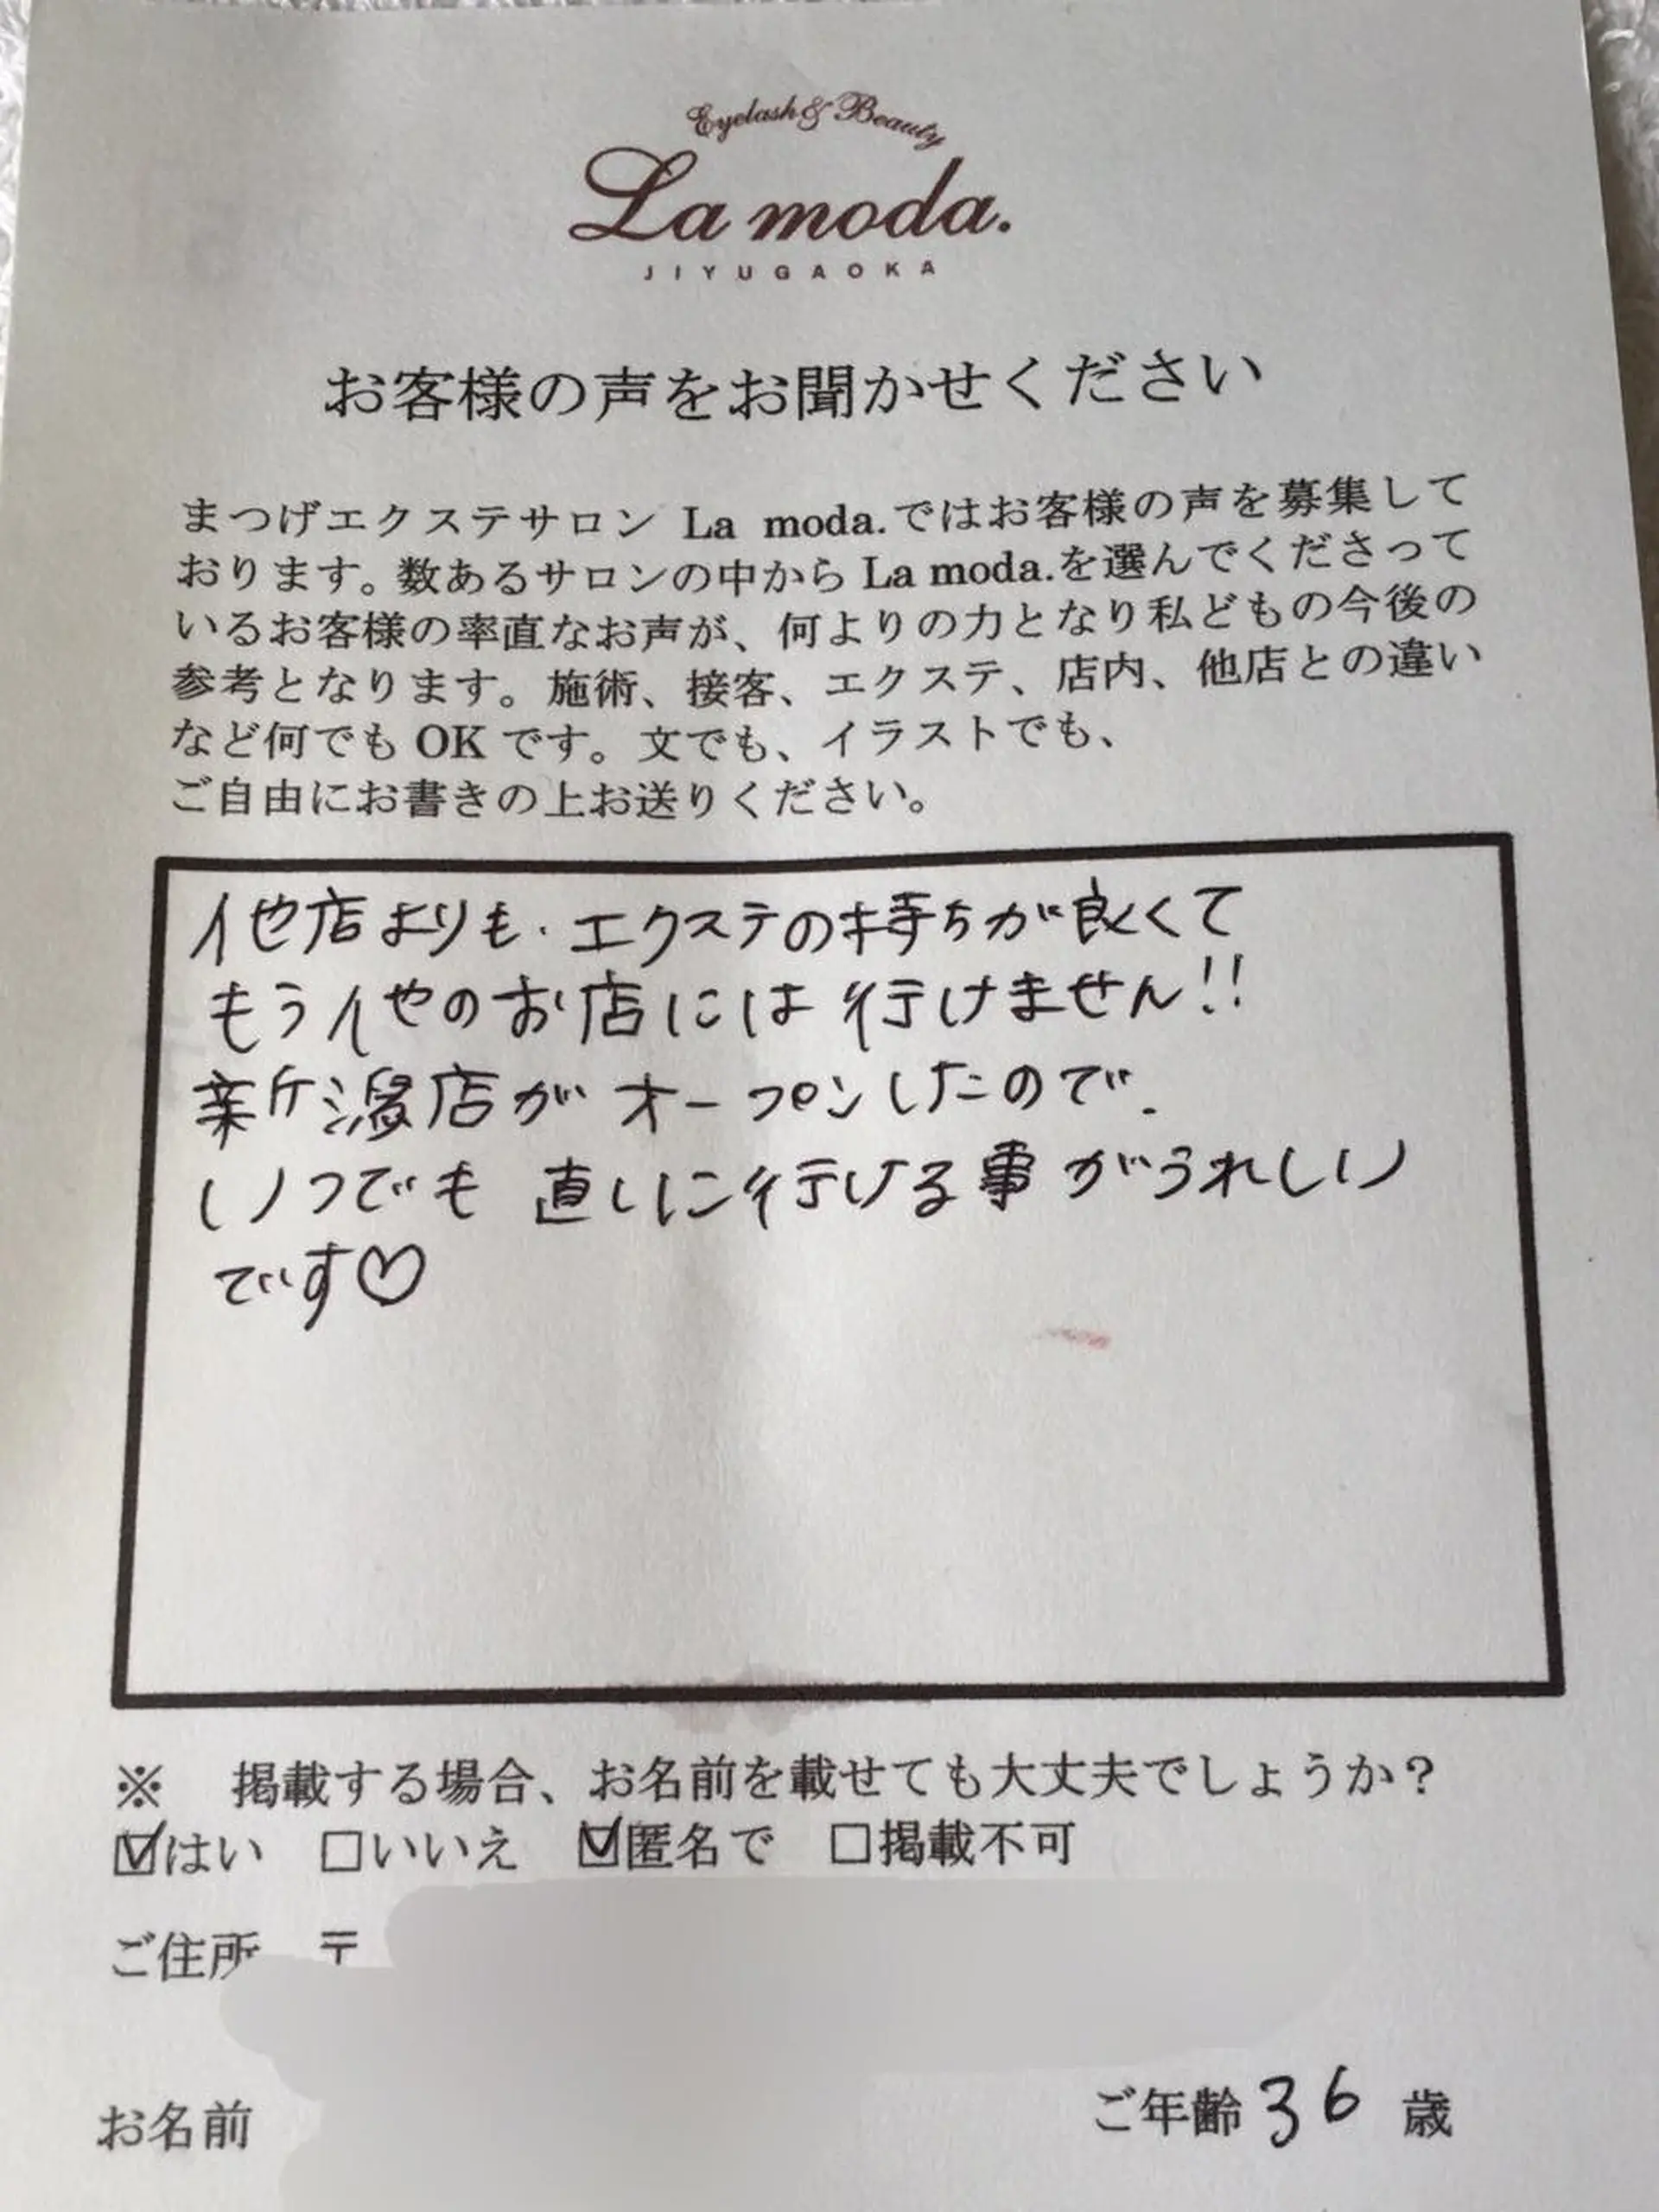 Eyelash & Beauty
La moda.
JIYUGAOKA
お客様の声をお聞かせください
まつげエクステサロン La moda.ではお客様の声を募集して
おります。数あるサロンの中から La moda.を選んでくださって
いるお客様の率直なお声が、何よりの力となり私どもの今後の
参考となります。施術、接客、エクステ、店内、他店との違い
など何でも OK です。文でも、イラストでも、
ご自由にお書きの上お送りください。
他店よりも、エクステの持ちが良くて
もう他のお店には行けません!!
新潟店がオープンしたので、
いつでも直しに行ける事がうれしい
です♡
※ 掲載する場合、お名前を載せても大丈夫でしょうか？
☑はい □いいえ ☑匿名で □掲載不可
ご住所 〒
お名前 ご年齢 36 歳